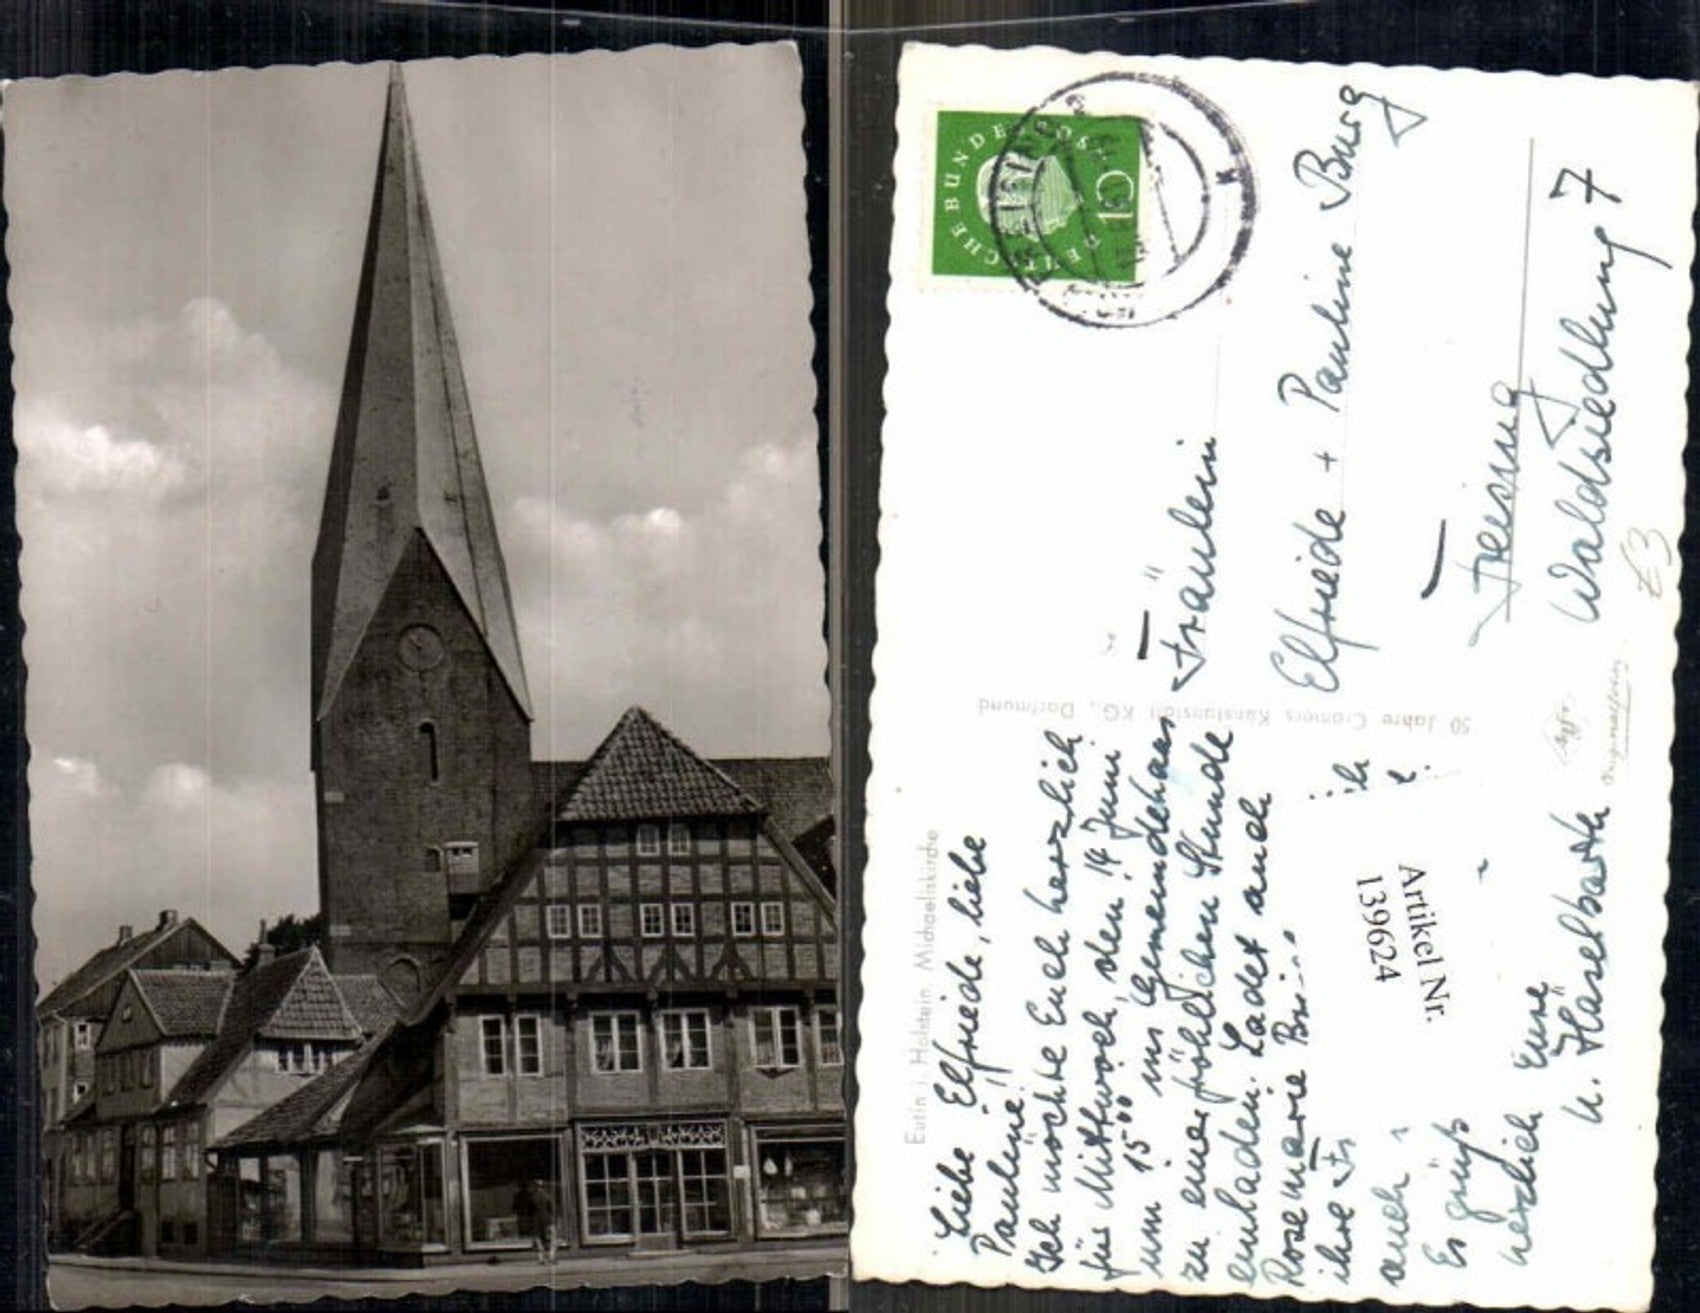 DEUTSCHE BUNDESPOST
10
Eutin i. Holstein. Michaeliskirche
50 Jahre Cramers Kunstanstalt KG., Dortmund
Liebe Elfriede, liebe
Pauline,
Ich möchte Euch herzlich
für Mittwoch, den 14. Juni
um 15⁰⁰ ins Gemeindehaus
zu einer fröhlichen Stunde
einladen. Ladet auch
Rosemarie
ihre
auch
Es grüßt
herzlich Eure
U. Häselbarth
Fräulein
Elfriede + Pauline Burg
Waldsiedlung 7
Artikel Nr.
139624
£3